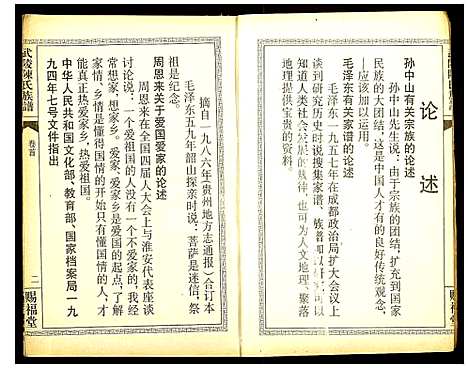 论述
孙中山有关宗族的论述
孙中山先生说：由于宗族的团结，扩充到国家
民族的大团结，这是中国人才有的良好传统观念，
——应该加以运用。
毛泽东有关家谱的论述
毛泽东一九五七年在成都政治局扩大会议上
谈到研究历史时说搜集家谱、族谱加以研究可以
知道人类社会发展的规律，也可为人文地理、聚落
地理提供宝贵的资料。
武陵陳氏族譜
卷首
摘自一九八六年《贵州地方志通报》合订本
毛泽东五九年韶山探亲时说：菩萨是迷信，祭
祖是纪念。
周恩来关于爱国爱家的论述
周恩来在全国四届人大会上与淮安代表座谈
讨论说：一个不爱祖国的人没有一个不爱家的，我经
常想家，想乡亲。爱家、爱家乡是爱国的起点，了解
家情、乡情是懂得国情的开始只有懂国情的人，才
能真正热爱家乡，热爱祖国。
中华人民共和国文化部、教育部、国家档案局一九
九四年七号文件指出
二
赐福堂